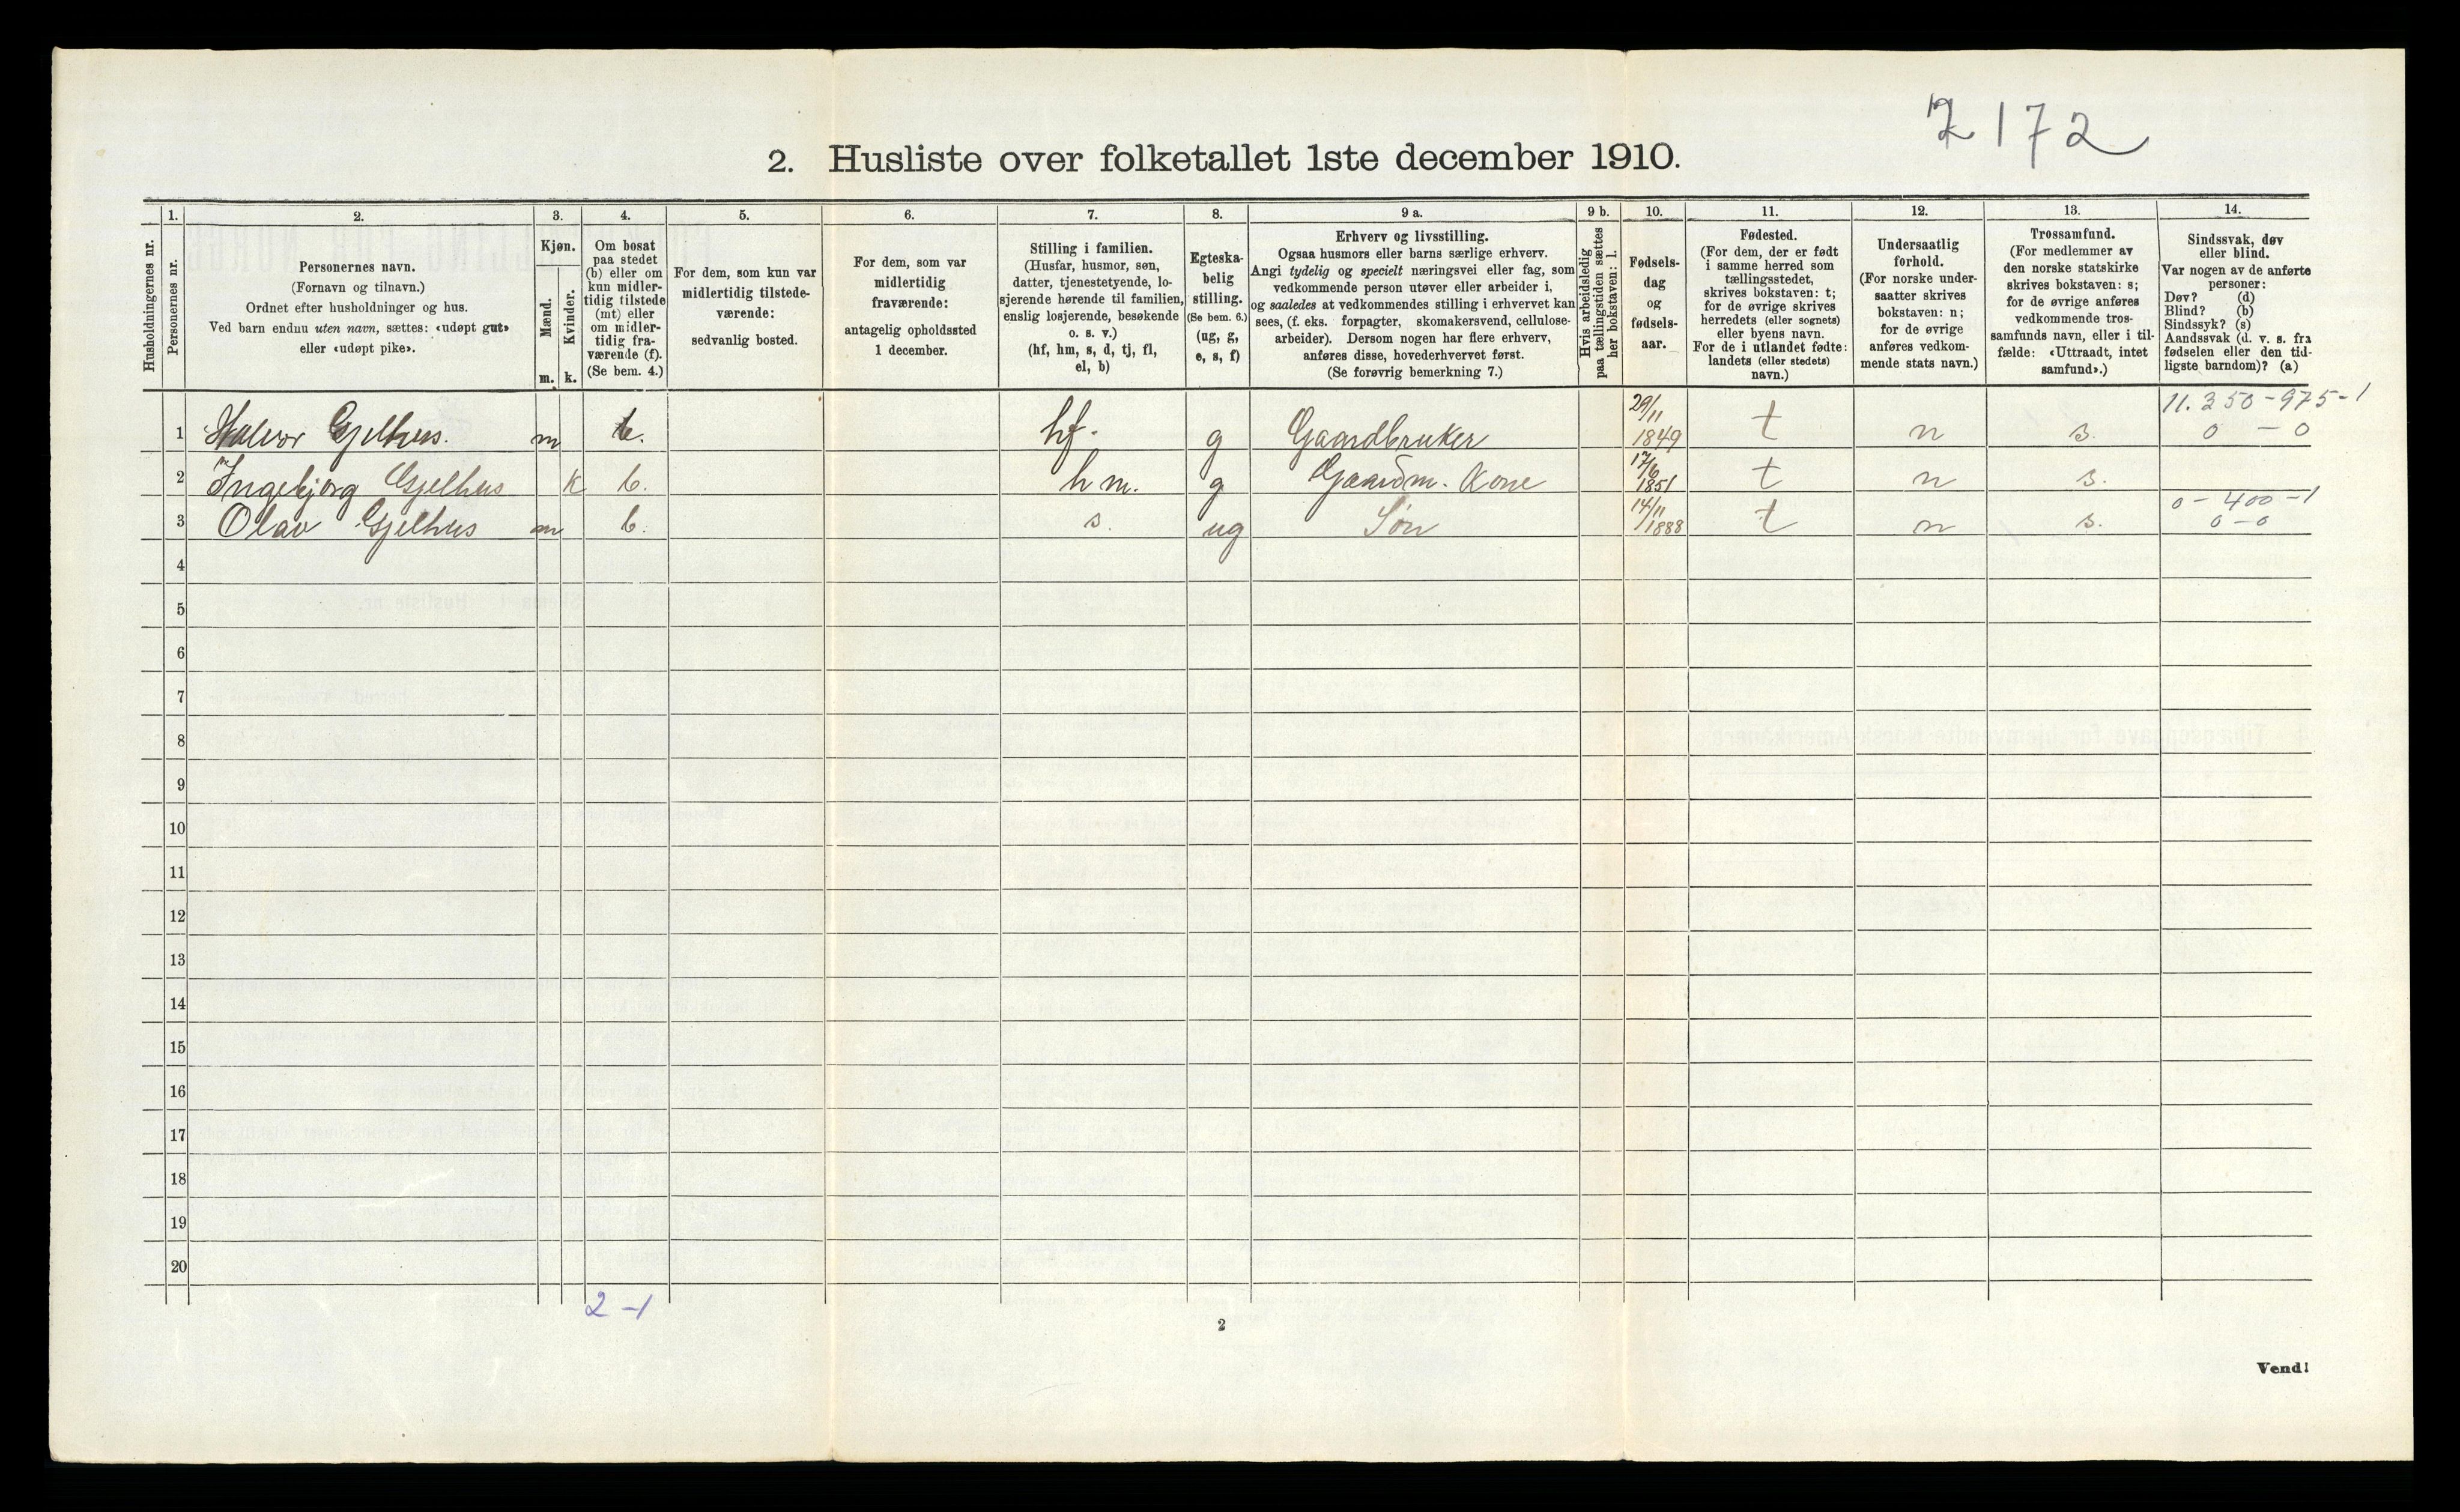 7172
2. Husliste over folketallet 1ste december 1910.
Husholdningernes nr.
1.
Personernes nr.
2.
Personernes navn.
(Fornavn og tilnavn.)
Ordnet efter husholdninger og hus.
Ved barn endnu uten navn, sættes: «udøpt gut»
eller «udøpt pike».
3.
Kjøn.
Mænd.
Kvinder.
m. k.
4.
Om bosat
paa stedet
(b) eller om
kun midler-
tidig tilstede
(mt) eller
om midler-
tidig fra-
værende (f).
(Se bem. 4.)
5.
For dem, som kun var
midlertidig tilstede-
værende:
sedvanlig bosted.
6.
For dem, som var
midlertidig
fraværende:
antagelig opholdssted
1 december.
7.
Stilling i familien.
(Husfar, husmor, søn,
datter, tjenestetyende, lo-
sjerende hørende til familien,
enslig losjerende, besøkende
o. s. v.)
(hf, hm, s, d, tj, fl,
el, b)
8.
Egteska-
belig
stilling.
(Se bem. 6.)
(ug, g,
e, s, f)
9 a.
Erhverv og livsstilling.
Ogsaa husmors eller barns særlige erhverv.
Angi tydelig og specielt næringsvei eller fag, som
vedkommende person utøver eller arbeider i,
og saaledes at vedkommendes stilling i erhvervet kan
sees, (f. eks. forpagter, skomakersvend, cellulose-
arbeider). Dersom nogen har flere erhverv,
anføres disse, hovederhvervet først.
(Se forøvrig bemerkning 7.)
9 b.
Hvis arbeidsledig
paa tællingstiden sættes
her bokstaven: l.
10.
Fødsels-
dag
og
fødsels-
aar.
11.
Fødested.
(For dem, der er født
i samme herred som
tællingsstedet,
skrives bokstaven: t;
for de øvrige skrives
herredets (eller sognets)
eller byens navn.
For de i utlandet fødte:
landets (eller stedets)
navn.)
12.
Undersaatlig
forhold.
(For norske under-
saatter skrives
bokstaven: n;
for de øvrige
anføres vedkom-
mende stats navn.)
13.
Trossamfund.
(For medlemmer av
den norske statskirke
skrives bokstaven: s;
for de øvrige anføres
vedkommende tros-
samfunds navn, eller i til-
fælde: «Uttraadt, intet
samfund».)
14.
Sindssvak, døv
eller blind.
Var nogen av de anførte
personer:
Døv? (d)
Blind? (b)
Sindssyk? (s)
Aandssvak (d. v. s. fra
fødselen eller den tid-
ligste barndom)? (a)
11.350-975-1
1 Halvor Gjelhus. m b. hf. g Gaardbruker 29/11 1849 t n s. 0 - 0
2 Ingebjørg Gjelhus k b. hm. g Gaardm. Kone 17/6 1851 t n s.
0-400-1
3 Olav Gjelhus m b. s. ug Søn 14/11 1888 t n s. 0-0
4
5
6
7
8
9
10
11
12
13
14
15
16
17
18
19
20
2-1
2
Vend!